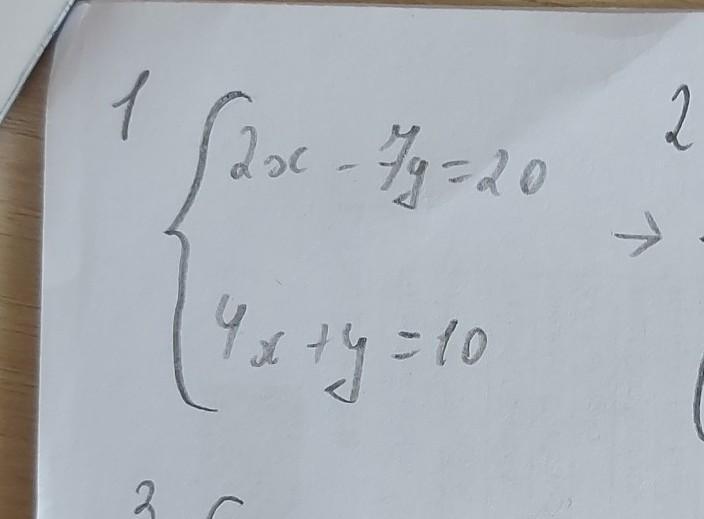 1
2x - 7y = 20
4x + y = 10
2
→
3